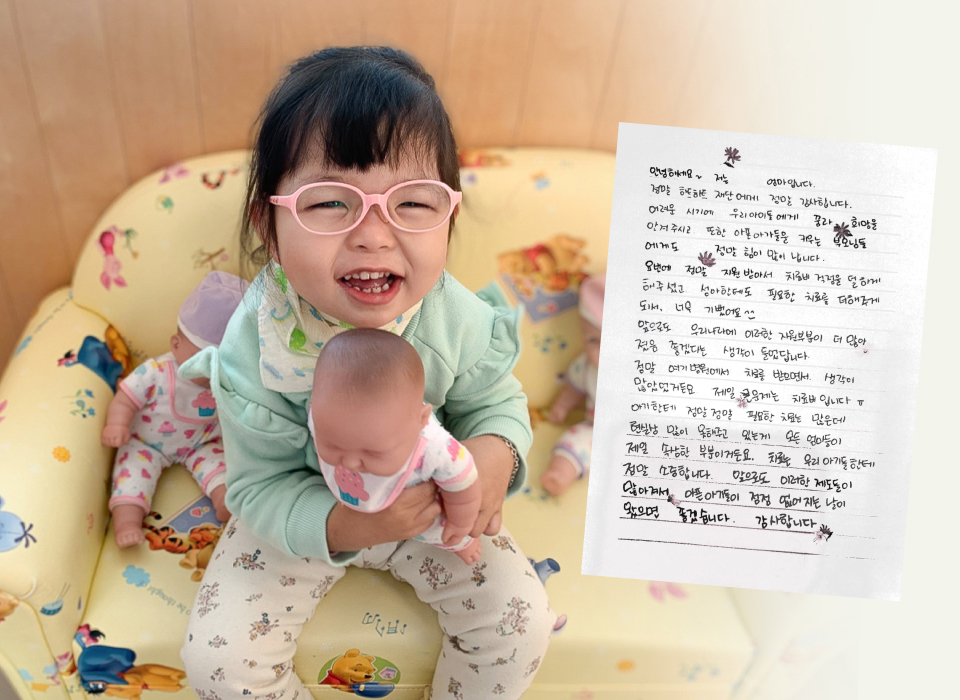 안녕하세요~ 저는 엄마입니다.
정말 하트하트 재단에게 정말 감사합니다.
어려운 시기에 우리아이들에게 꿈과 희망을
안겨주시고 또한 아픈아가들을 키우는 부모님들
에게도 정말 힘이 많이 납니다.
요번에 정말 지원받아서 치료비 걱정을 덜하게
해주셨고 성아한테도 필요한 치료를 더해주게
되서, 너무 기뻤어요^^
앞으로도 우리나라에 이러한 지원부분이 더 많아
졌음 좋겠다는 생각이 들었답니다.
정말 여기병원에서 치료를 받으면서 생각이
많았었거든요 제일 문제는 치료비입니다 ㅠ
아기한테 정말 정말 필요한 치료는 많은데
현실상 많이 못해주고 있는게 모든 엄마들이
제일 속상한 부분이거든요. 치료는 우리아기들한테
정말 소중합니다. 앞으로도 이러한 제도들이
많아져서 아픈아기들이 점점 없어지는 날이
왔으면 좋겠습니다. 감사합니다